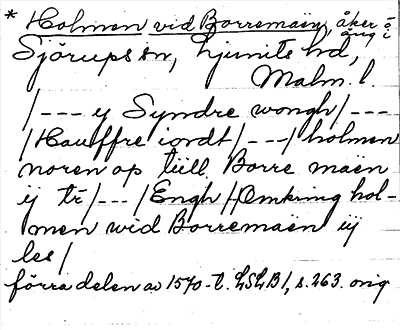 * Holmen vid Borremaen, åker- o äng i
Sjörups sn, Ljunits hd,
Malm. l.
/--- y Syndre wongh/---
/Hauffre iordt/---/holmen
noren op till Borre maen
ij tr/---/Engh/Omkring hol-
men wid Borremaen iij
les/
förra delen av 1570-t. LSLB1, s. 263. orig